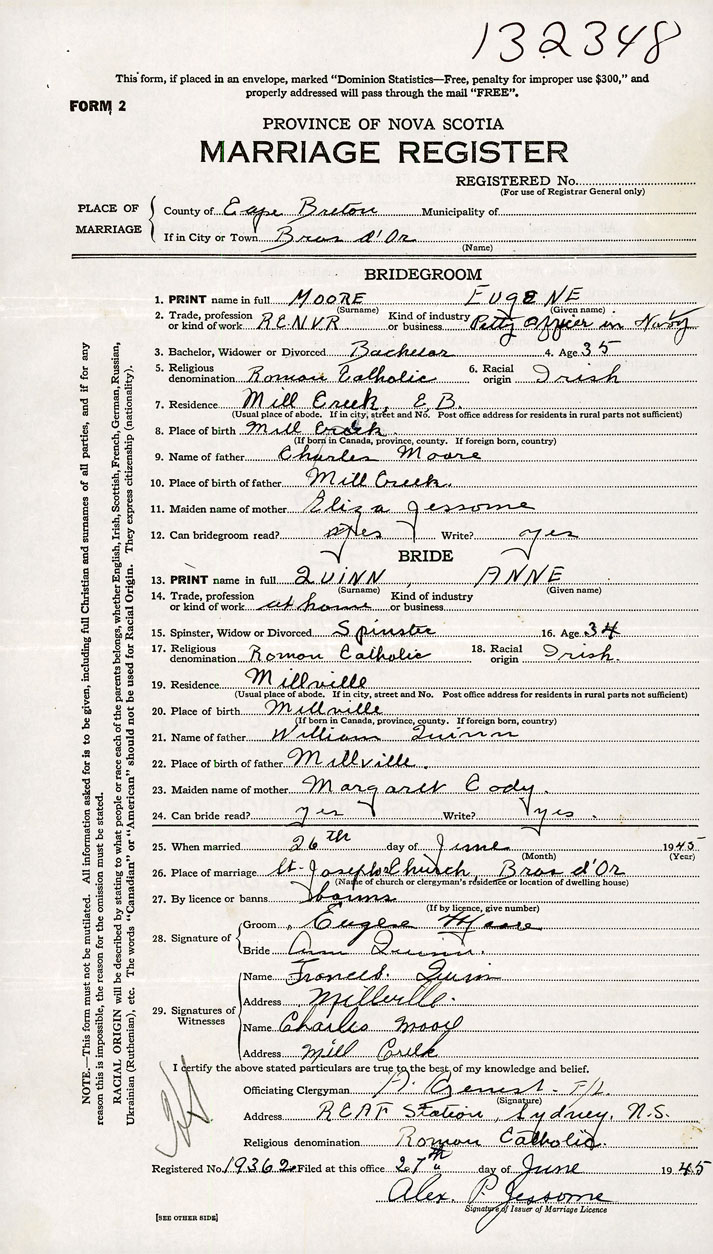 132348
This form, if placed in an envelope, marked "Dominion Statistics—Free, penalty for improper use $300," and
properly addressed will pass through the mail "FREE".
FORM 2
PROVINCE OF NOVA SCOTIA
MARRIAGE REGISTER
REGISTERED No.
(For use of Registrar General only)
PLACE OF MARRIAGE
County of Cape Breton Municipality of
If in City or Town Bras d'Or
(Name)
BRIDEGROOM
1. PRINT name in full MOORE EUGENE
(Surname) (Given name)
2. Trade, profession or kind of work R.C.N.V.R Kind of industry or business Petty Officer in Navy
3. Bachelor, Widower or Divorced Bachelor 4. Age 35
5. Religious denomination Roman Catholic 6. Racial origin Irish
7. Residence Mill Creek, C.B.
(Usual place of abode. If in city, street and No. Post office address for residents in rural parts not sufficient)
8. Place of birth Mill Creek.
(If born in Canada, province, county. If foreign born, country)
9. Name of father Charles Moore
10. Place of birth of father Mill Creek.
11. Maiden name of mother Eliza Jessome
12. Can bridegroom read? yes Write? yes
BRIDE
13. PRINT name in full QUINN, ANNE
(Surname) (Given name)
14. Trade, profession or kind of work at home Kind of industry or business
15. Spinster, Widow or Divorced Spinster 16. Age 34
17. Religious denomination Roman Catholic 18. Racial origin Irish.
19. Residence Millville
(Usual place of abode. If in city, street and No. Post office address for residents in rural parts not sufficient)
20. Place of birth Millville
(If born in Canada, province, county. If foreign born, country)
21. Name of father William Quinn
22. Place of birth of father Millville.
23. Maiden name of mother Margaret Cody.
24. Can bride read? yes Write? yes.
25. When married 26th day of June 1945
(Month) (Year)
26. Place of marriage St. Joseph's Church, Bras d'Or
(Name of church or clergyman's residence or location of dwelling house)
27. By licence or banns banns
(If by licence, give number)
28. Signature of
Groom Eugene Moore
Bride Ann Quinn.
29. Signatures of Witnesses
Name Francis Quinn
Address Millville.
Name Charles Moore
Address Mill Creek
I certify the above stated particulars are true to the best of my knowledge and belief.
Officiating Clergyman F/L
(Signature)
Address RCAF Station, Sydney, N.S.
Religious denomination Roman Catholic.
Registered No. 19362 Filed at this office 27th day of June 1945
Alex. P. Jessome
Signature of Issuer of Marriage Licence
[SEE OTHER SIDE]
NOTE.—This form must not be mutilated. All information asked for is to be given, including full Christian and surnames of all parties, and if for any
reason this is impossible, the reason for the omission must be stated.
RACIAL ORIGIN will be described by stating to what people or race each of the parents belongs, whether English, Irish, Scottish, French, German, Russian,
Ukrainian (Ruthenian), etc. The words "Canadian" or "American" should not be used for Racial Origin. They express citizenship (nationality).